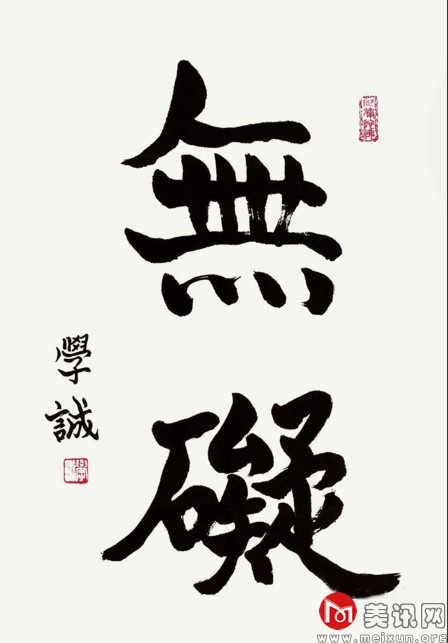 無礙
學誠
美讯网
www.meixun.org